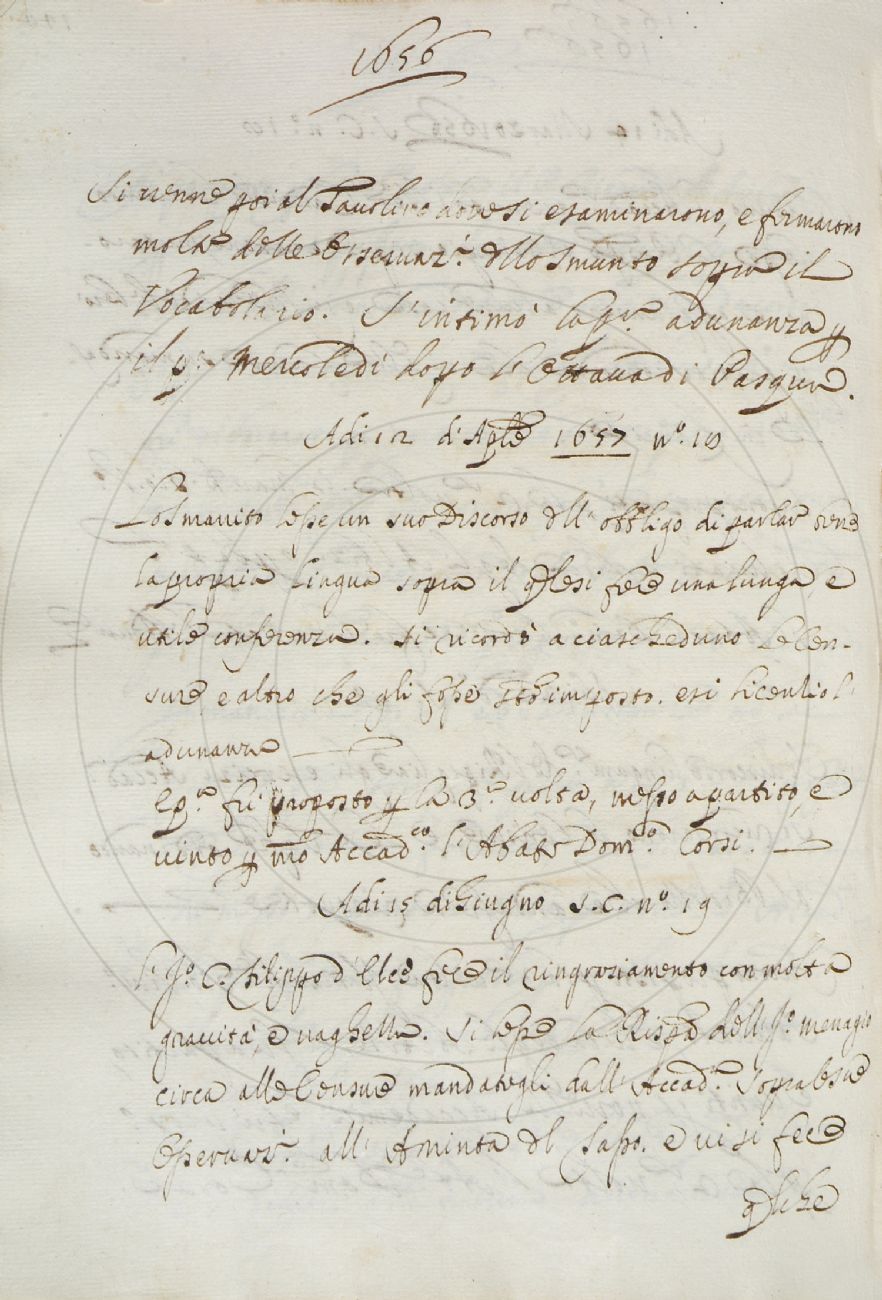 1656
Si venne poi al Tavolino dove si esaminarono, e fermarono
molte delle Osservaz.i dello Smunto sopra il
Vocabolario. S'intimò la pr.a adunanza p
il p.o Mercoledì dopo l'Ottava di Pasqua.
Adi 12 d'Aple 1657 n.o 18
Lo Smarrito lesse un suo Discorso dell'obbligo di parlar bene
la propria lingua sopra il qle si fece una lunga, e
utile conferenza. Si ricordò a ciascheduno le Cen-
sure, e altro che gli fosse imposto. e si licenziò l'
adunanza
E p.a fu proposto p la 3.a volta, messo a partito, e
vinto p nro Accad.co l'Abate Dom.o Corsi.
Adi 15 di Giugno S.C. n.o 19
Il S.r C. Filippo d'Elce fece il ringraziamento con molta
gravità, e vaghezza. Si lesse la Rispa dell S.r Menagio
circa alle Censure mandategli dall'Accad.a sopra le sue
Osservaz.i all'Aminta del Tasso. e vi si fece
qlche